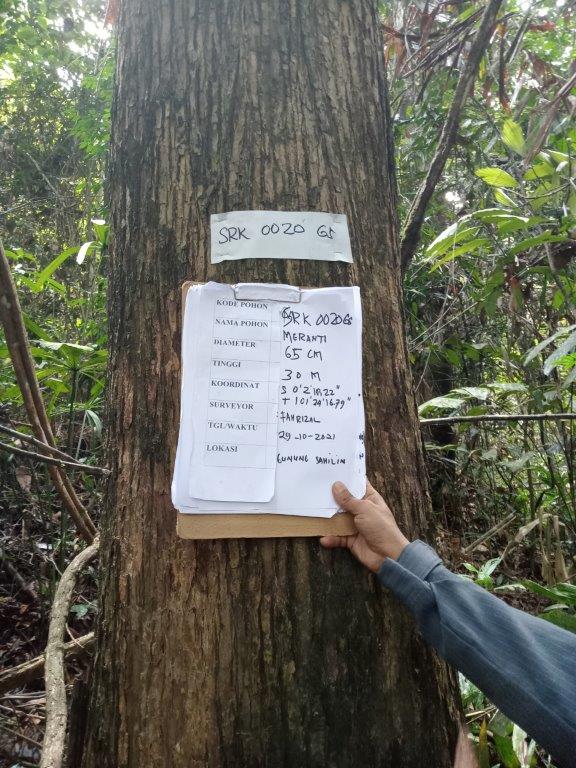 SRK 0020 GS
KODE POHON SRK 0020 GS
NAMA POHON MERANTI
DIAMETER 65 CM
TINGGI 30 M
KOORDINAT S 0°2'
T 101°29'16.79"
SURVEYOR : FAHRIZAL
TGL/WAKTU 29-10-2021
LOKASI GUNUNG SAHILIN